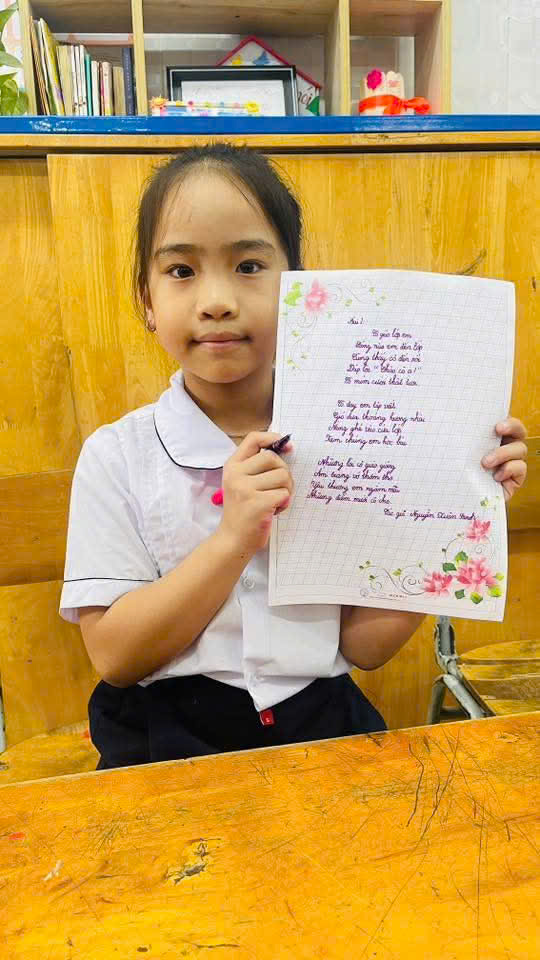 Bài 1:
Cô giáo lớp em
Sáng nào em đến lớp
Cũng thấy cô đến rồi
Đáp lời "Chào cô ạ!"
Cô mỉm cười thật tươi.
Cô dạy em tập viết
Gió đưa thoảng hương nhài
Nắng ghé vào cửa lớp
Xem chúng em học bài
Những lời cô giáo giảng
Ấm trang vở thơm tho
Yêu thương em ngắm mãi
Những điểm mười cô cho.
Tác giả: Nguyễn Xuân Sanh